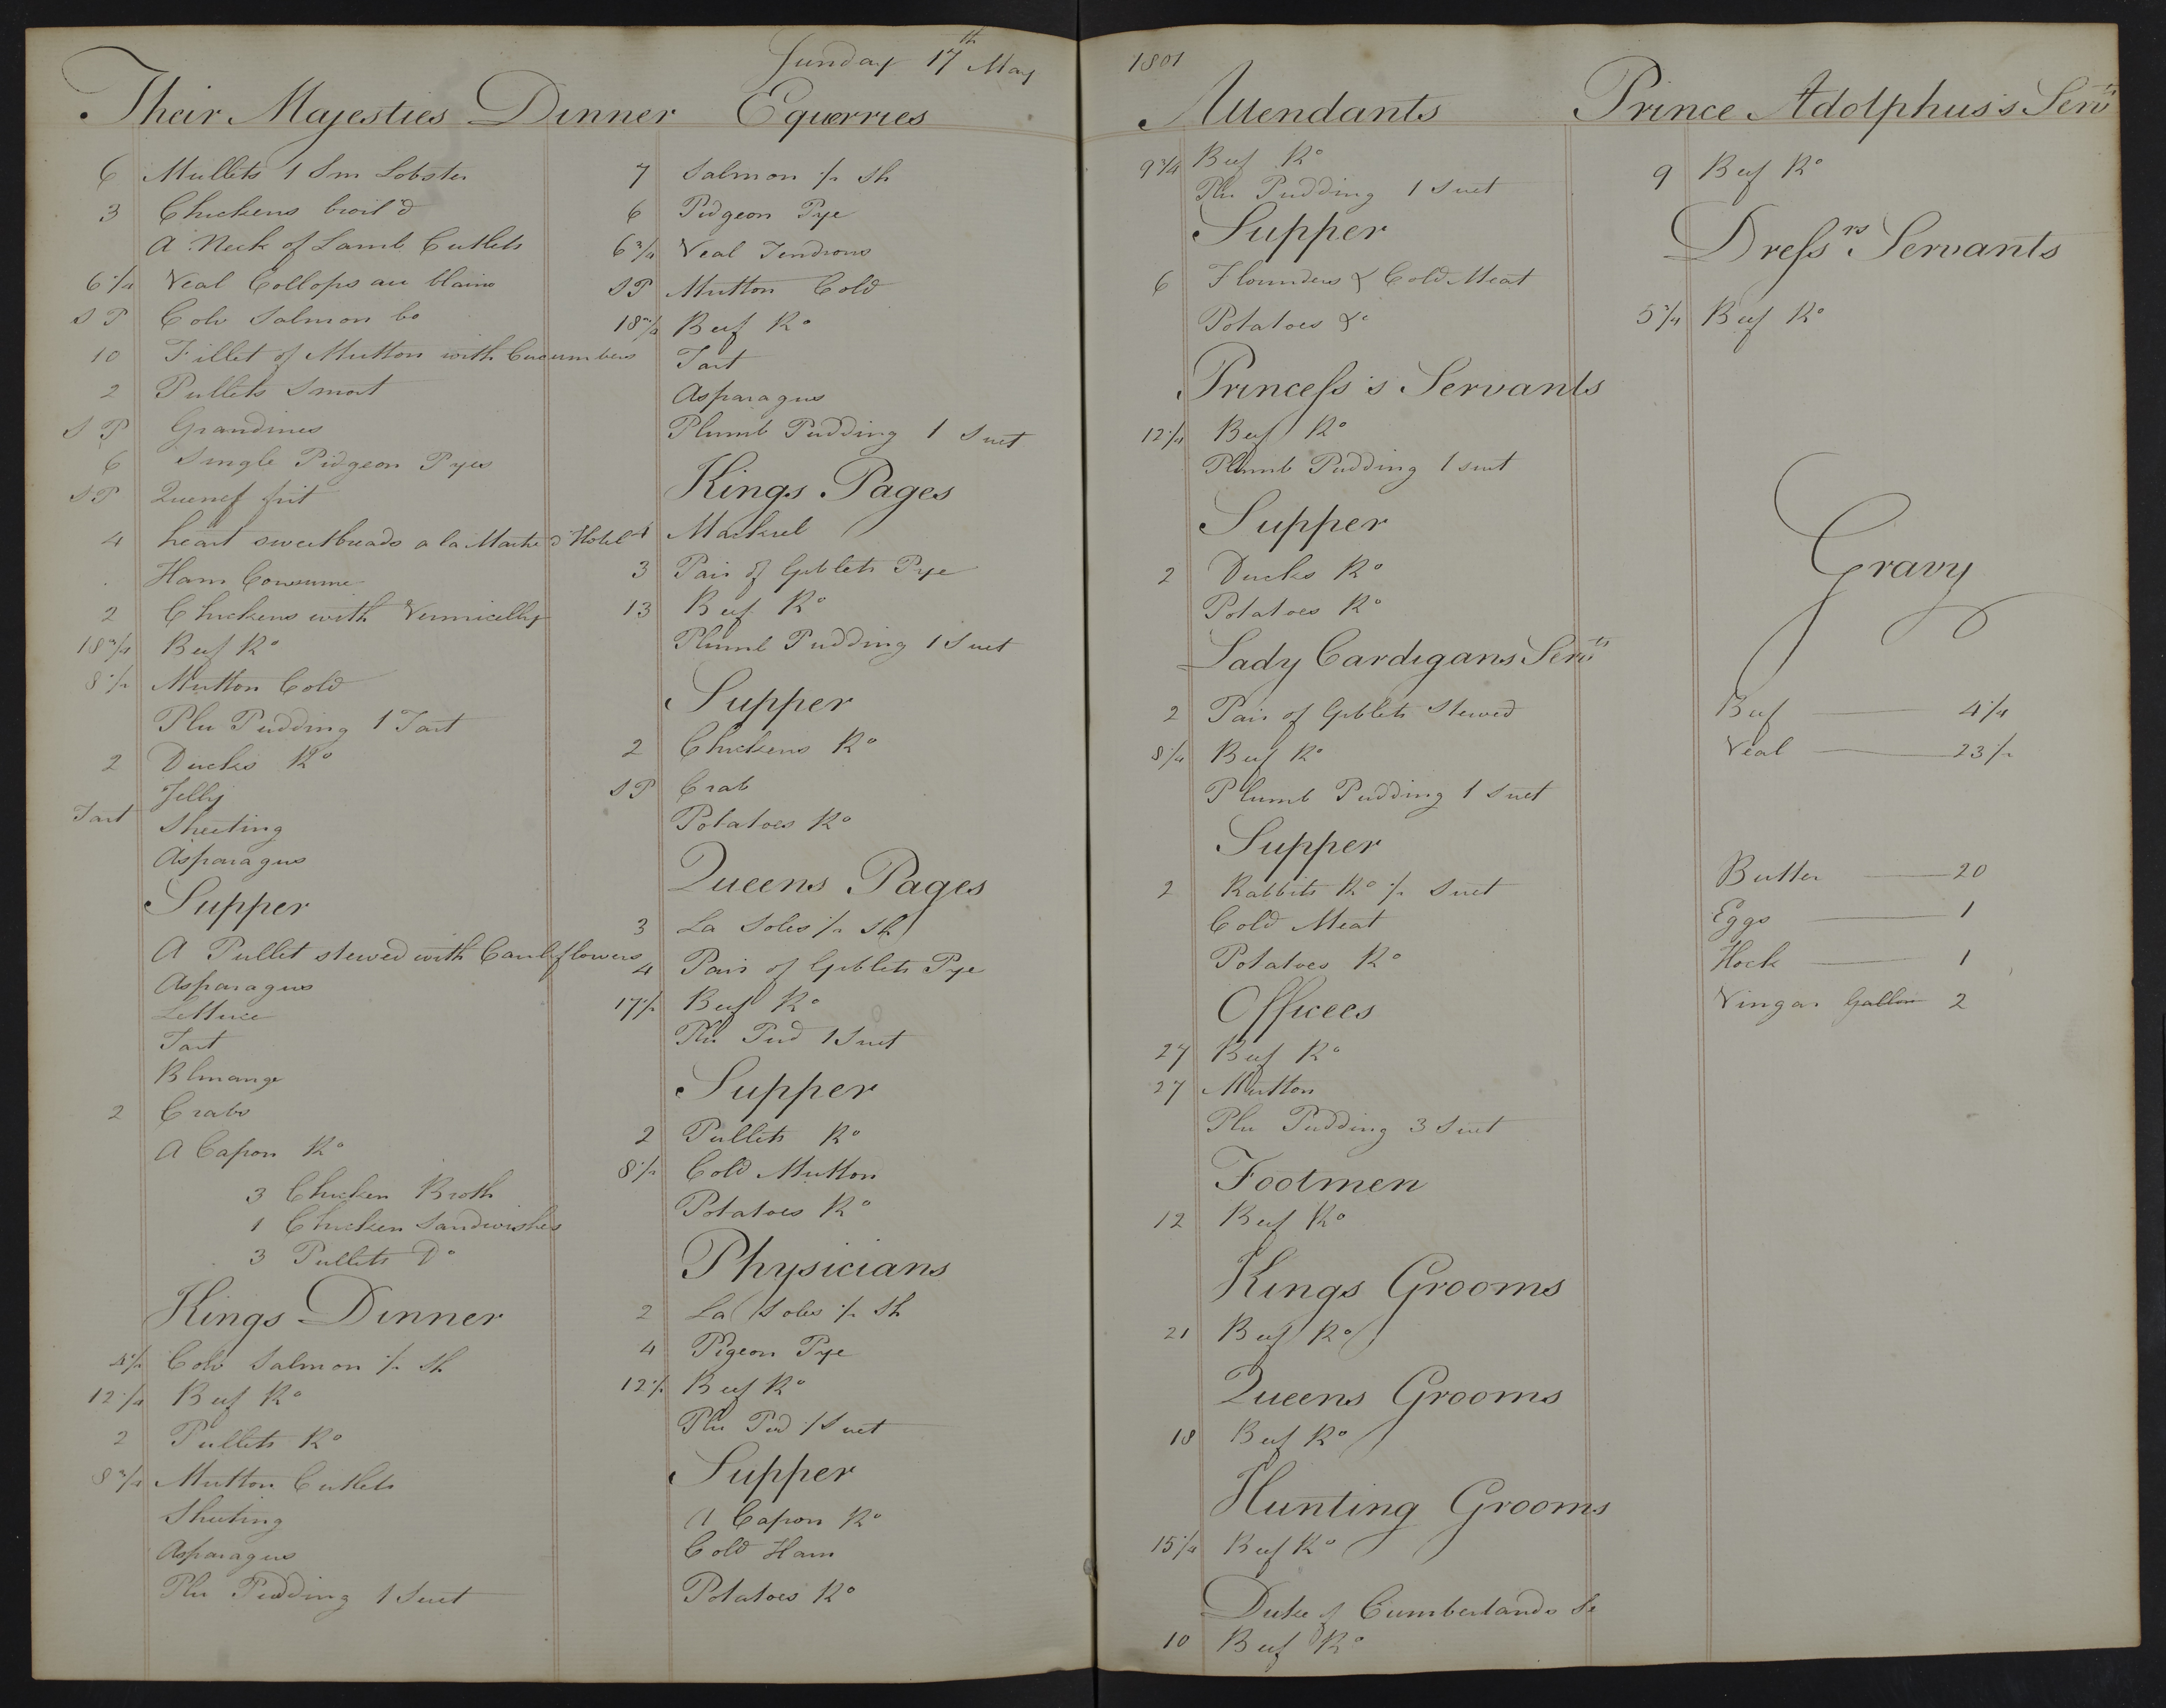 Sunday 17th May
Their Majesties Dinner
6 Mullets 1 Sm Lobster
3 Chickens broil'd
A Neck of Lamb Cutlets
6 1/4 Veal Collops au blainc
S P Colv Salmon bo
10 Fillet of Mutton with Cucumbers
2 Pullets Smort
S P Grandines
6 Single Pidgeon Pyes
S P Quenef frit
4 heart sweetbreads a la Maitre d'Hotel
Ham Consume
2 Chickens with Vermicelly
18 3/4 Beef Ro
8 1/2 Mutton Cold
Plu Pudding 1 Tart
2 Ducks Ro
Jelly
Tart Sheeting
Asparagus
Supper
A Pullet stewed with Cauliflowers
Asparagus
Lettuce
Tart
Blmange
2 Crabs
A Capon Ro
3 Chicken Broth
1 Chicken Sandwishes
3 Pullets Do
Kings Dinner
4 1/2 Colv Salmon 1/2 Sh
12 1/4 Beef Ro
2 Pullets Ro
8 3/4 Mutton Cutlets
Sheeting
Asparagus
Plu Pudding 1 Suet
Equerries
7 Salmon 1/2 Sh
6 Pidgeon Pye
6 3/4 Veal Tendrons
S P Mutton Cold
18 3/4 Beef Ro
Tart
Asparagus
Plumb Pudding 1 Suet
Kings Pages
4 Mackrel
3 Pair of Gibletts Pye
13 Beef Ro
Plumb Pudding 1 Suet
Supper
2 Chickens Ro
S P Crab
Potatoes Ro
Queens Pages
3 La Soles 1/2 Sh
4 Pair of Giblets Pye
17 1/2 Beef Ro
Plu Pud 1 Suet
Supper
2 Pullets Ro
8 1/2 Cold Mutton
Potatoes Ro
Physicians
2 La Soles 1/2 Sh
4 Pigeon Pye
12 1/2 Beef Ro
Plu Pud 1 Suet
Supper
A Capon Ro
Cold Ham
Potatoes Ro
1801
Attendants
9 3/4 Beef Ro
Plu Pudding 1 Suet
Supper
6 Flounders & Cold Meat
Potatoes &c
Princess's Servants
12 1/4 Beef Ro
Plumb Pudding 1 suet
Supper
2 Ducks Ro
Potatoes Ro
Lady Cardigans Servts
2 Pair of Giblets Stewed
8 1/4 Beef Ro
Plumb Pudding 1 Suet
Supper
2 Rabbits Ro 1/2 Suet
Cold Meat
Potatoes Ro
Officees
27 Beef Ro
27 Mutton
Plu Pudding 3 Suet
Footmen
12 Beef Ro
Kings Grooms
21 Beef Ro
Queens Grooms
18 Beef Ro
Hunting Grooms
15 1/4 Beef Ro
Duke of Cumberlands Se
10 Beef Ro
Prince Adolphus's Servts
9 Beef Ro
Dressrs Servants
5 3/4 Beef Ro
Gravy
Beef 4 1/4
Veal 23 1/2
Butter 20
Eggs 1
Hock 1
Vingar Gallon 2